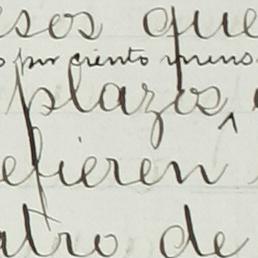 esos que
por ciento menos
plazos,
efieren
atro de